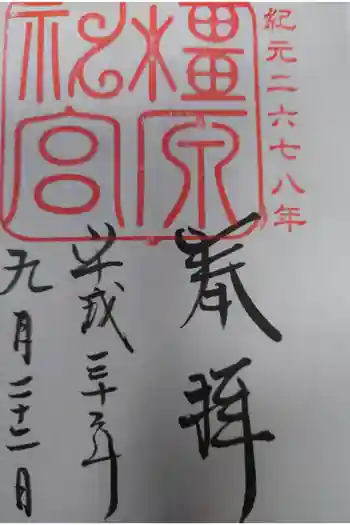 紀元二六七八年
橿原
神宮
奉拝
平成三十年
九月二十二日